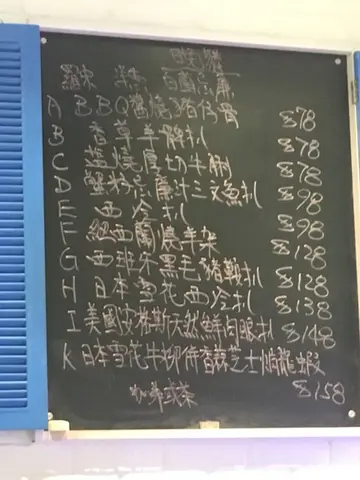 晚餐
羅宋 湯 忌廉
A BBQ醬燒豬仔骨 $78
B 香草羊髀扒 $78
C 蓝燒厚切牛脷 $78
D 蟹粉忌廉汁三文魚扒 $98
E 西冷扒 $98
F 紐西蘭燒羊架 $128
G 西班牙黑毛豬鞍扒 $128
H 日本雪花西冷扒 $138
I 美國安格斯天然鮮肉眼扒 $148
K 日本雪花牛柳併香蒜芝士焗龍蝦 $158
咖啡或茶